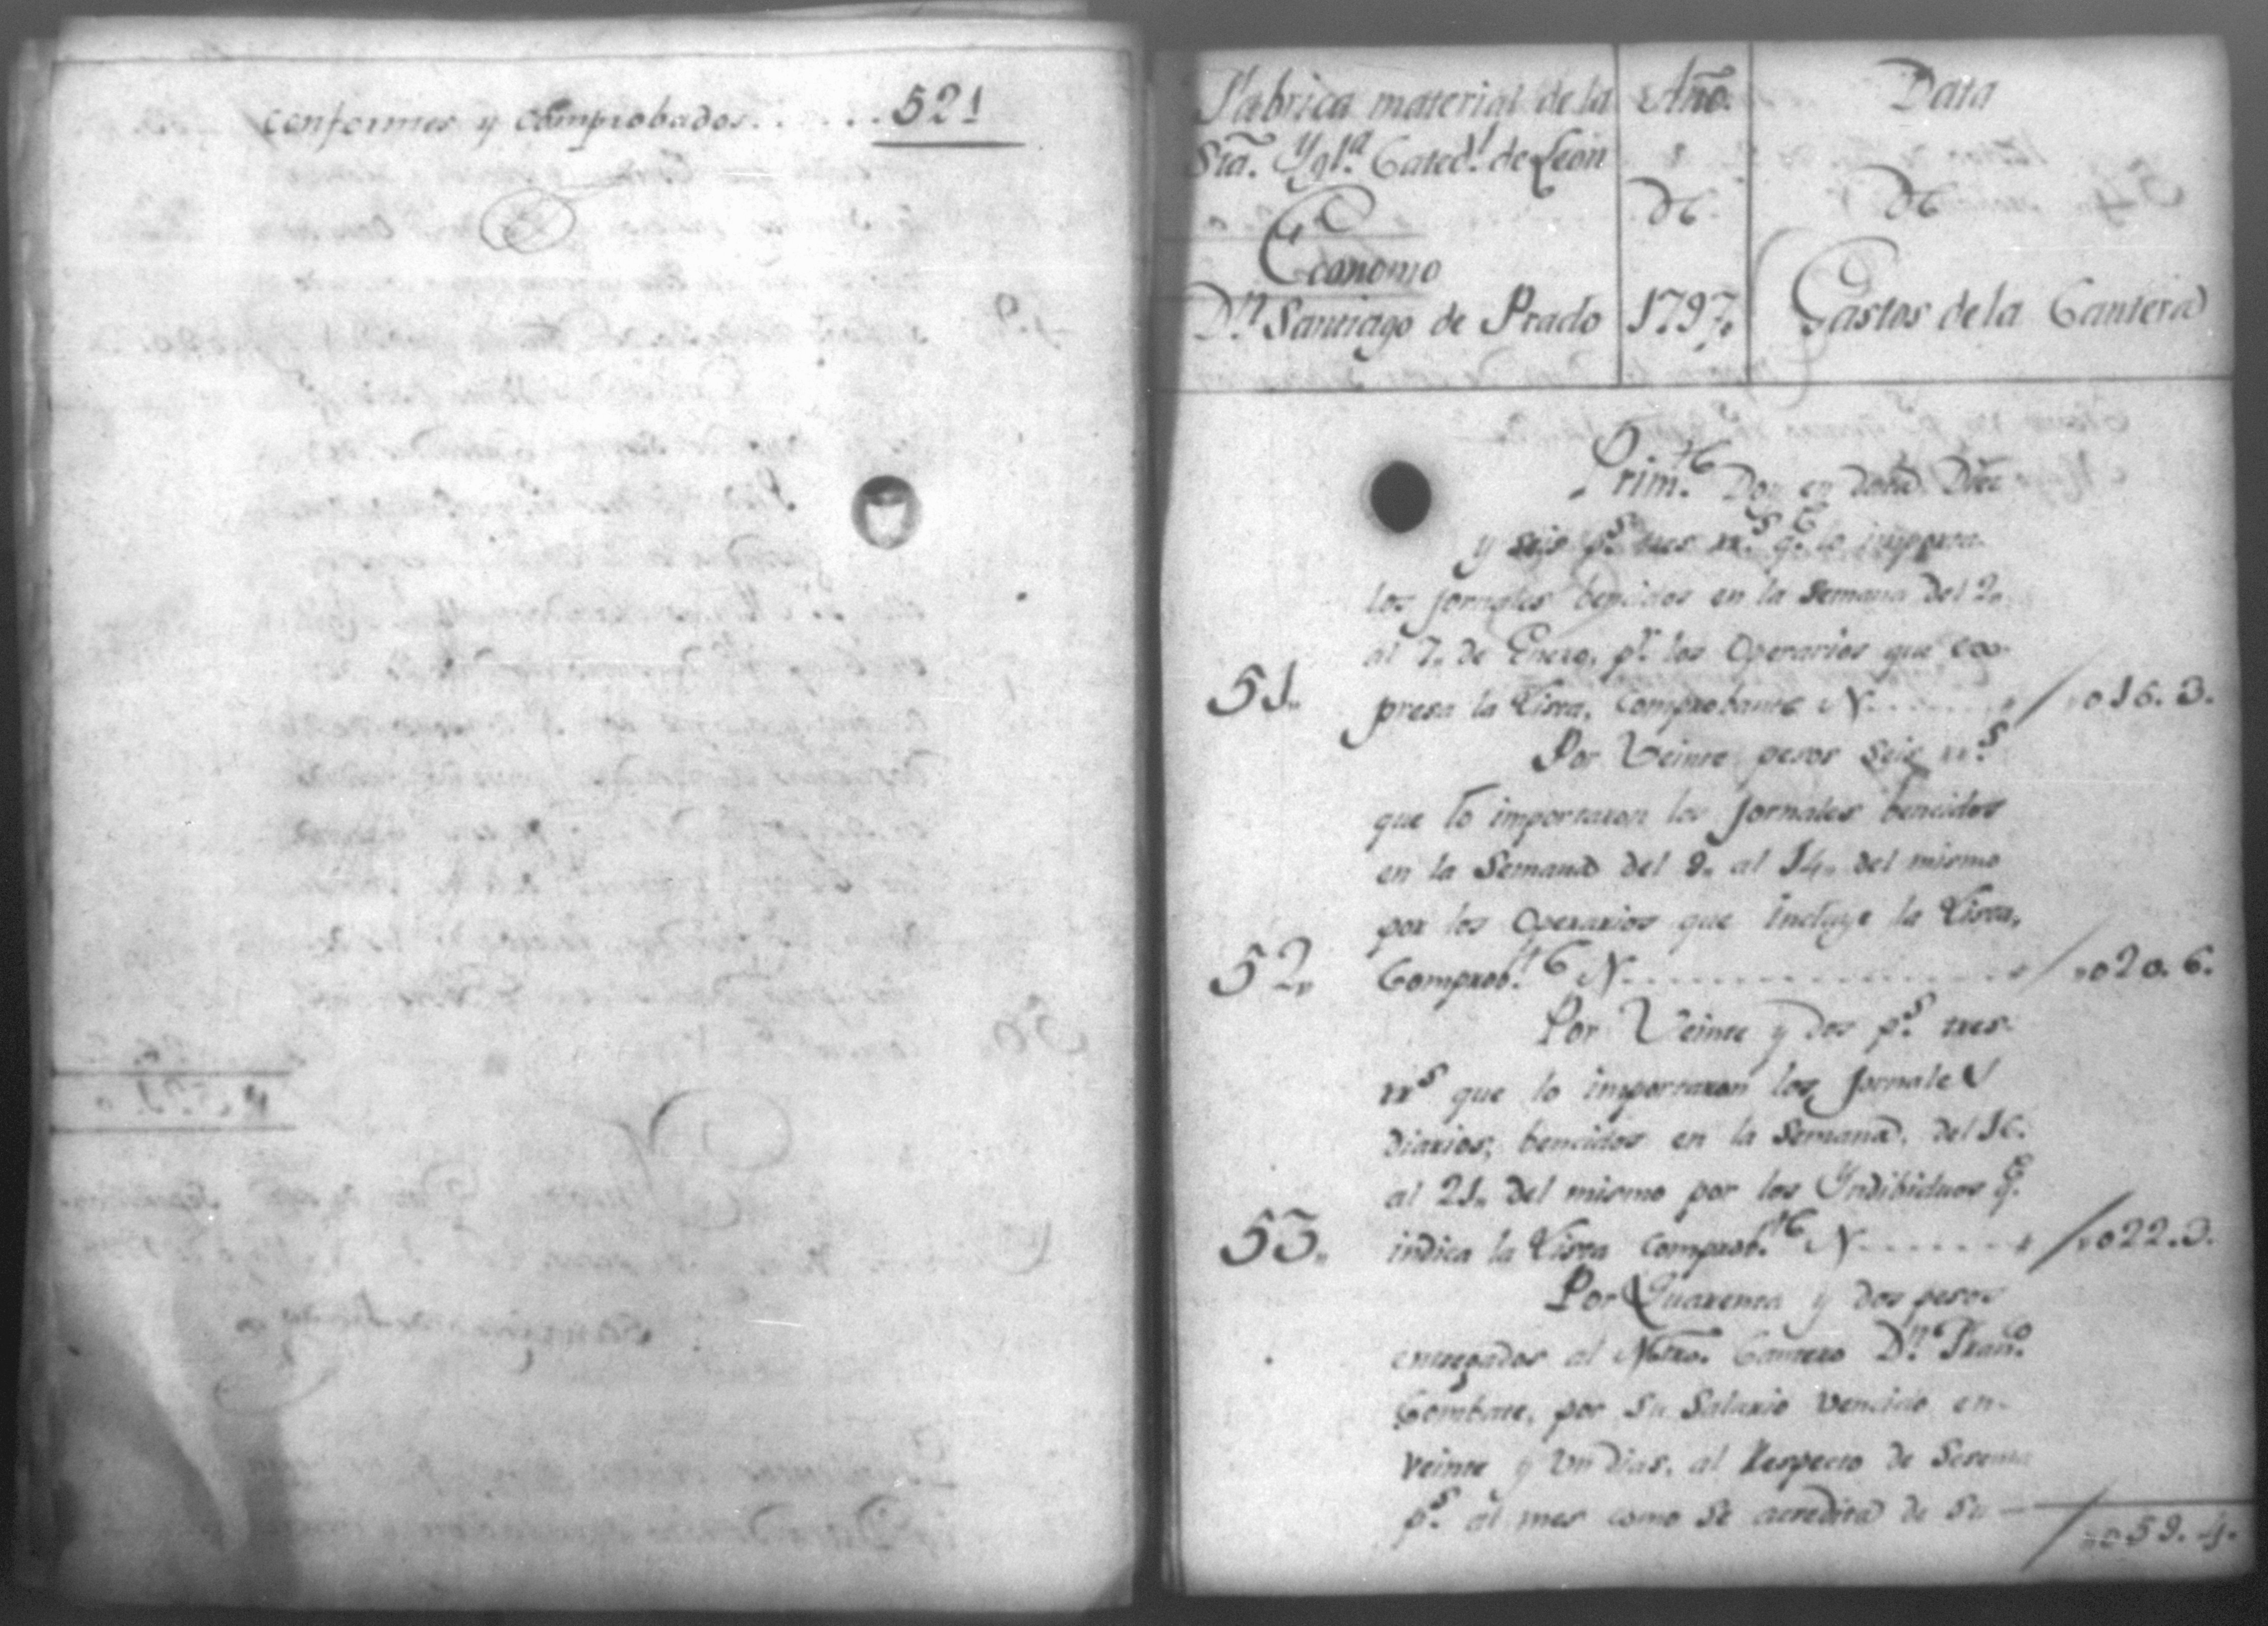 conformes y comprobados. . . . . . 521
Fabrica material de la
Sta. Ygla. Catedl. de Leon
Economo
Dn. Santiago de Prado
Año.
de
1797.
Data
de
Gastos de la Cantera
Primte. Doy en data Diez
y seis ps. tres rrs. qe. lo importa.
los jornales bencidos en la Semana del 2„
al 7„ de Enero, pr. los Operarios que ex-
51„ presa la Lista, Comprobante N. . . . . . . „016. 3.
Por Veinte pesos seis rrs.
que lo importaron los Jornales bencidos
en la Semana del 9„ al 14„ del mismo
por los Operarios que incluye la Lista,
52„ Comprobte. N. . . . . . . . . . . . „020. 6.
Por Veinte y dos ps. tres
rrs que lo importaron los Jornales
diarios, bencidos en la Semana, del 16.
al 21„ del mismo por los Yndibiduos qe.
53„ indica la Lista Comprobte. N. . . . . . . „022.3.
Por Quarenta y dos pesos
entregados al Mtro. Cantero Dn. Franco.
Gombave, por su Salario vencido en
veinte y un dias, al Respecto de Sesenta
ps. al mes como se acredita de su —
„059. 4.